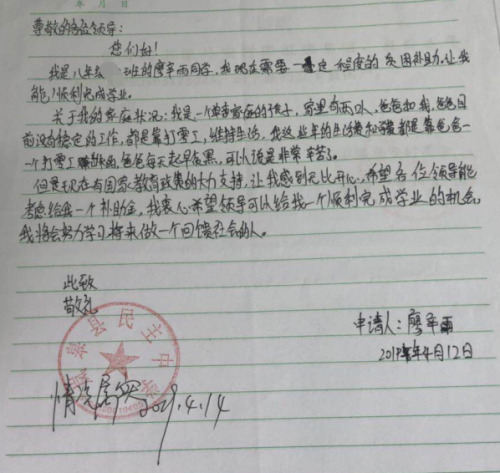 年 月 日
尊敬的各位领导:
您们好!
我是八年级 班的廖军雨同学,我现在需要一定程度的贫困补助,让我
能顺利完成学业。
关于我的家庭状况:我是一个单亲家庭的孩子,家里有两口人,爸爸和我,爸爸目
前没有稳定的工作,都是靠打零工,维持生活。我这些年的生活费和学费都是靠爸爸一
个打零工赚钱的爸爸每天起早贪黑,可以说是非常辛苦了。
但是现在有国家教育政策的大力支持,让我感到无比开心,希望各位领导能
考虑给我一个补助金,我衷心希望领导可以给我一个顺利完成学业的机会,
我将会努力学习将来做一个回馈社会的人。
此致
敬礼
申请人:廖军雨
2019年4月12日
县民主中学
情况属实 2019.4.14